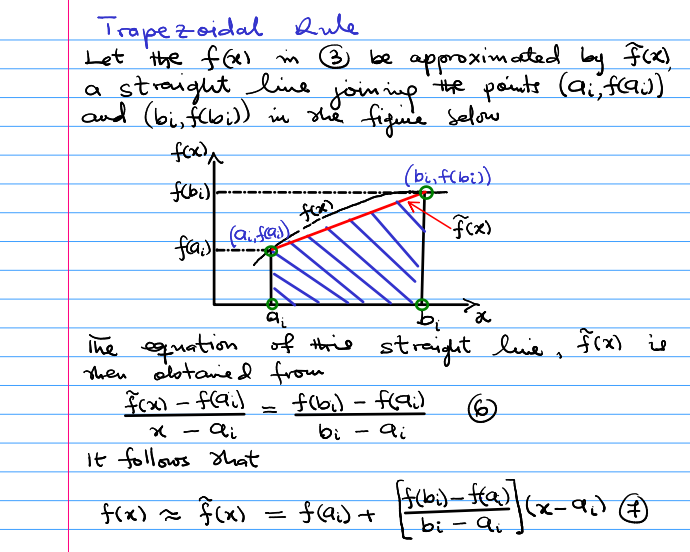 Trapezoidal Rule
Let the f(x) in ③ be approximated by f̃(x),
a straight line joining the points (aᵢ, f(aᵢ))
and (bᵢ, f(bᵢ)) in the figure below
f(x)
(bᵢ, f(bᵢ))
f(bᵢ)
f(x)
(aᵢ, f(aᵢ))
f̃(x)
f(aᵢ)
aᵢ bᵢ x
The equation of this straight line, f̃(x) is
then obtained from
(f̃(x) − f(aᵢ))/(x − aᵢ) = (f(bᵢ) − f(aᵢ))/(bᵢ − aᵢ) ⑥
It follows that
f(x) ≈ f̃(x) = f(aᵢ) + [(f(bᵢ) − f(aᵢ))/(bᵢ − aᵢ)] (x − aᵢ) ⑦